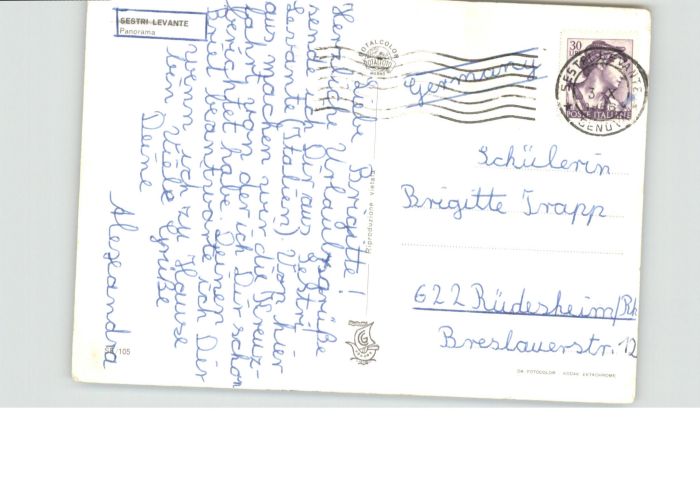 SESTRI LEVANTE
Panorama
Liebe Brigitte!
Herzliche Urlaubsgrüße
sende ich Dir aus Sestri
Levante (Italien). Von hier
aus machen wir die Kreuz-
fahrt von der ich Dir schon
berichtet habe. Deinen
Brief beantworte ich Dir
wenn ich zu Hause
bin. Viele Grüße
Deine
Alexandra
105
Riproduzione vietata
TOTALCOLOR
Germany
30
POSTE ITALIANE
SESTRI LEVANTE
GENOVA
Schülerin
Brigitte Trapp
622 Rüdesheim/Rh
Breslauerstr. 12
DA FOTOCOLOR KODAK EKTACHROME